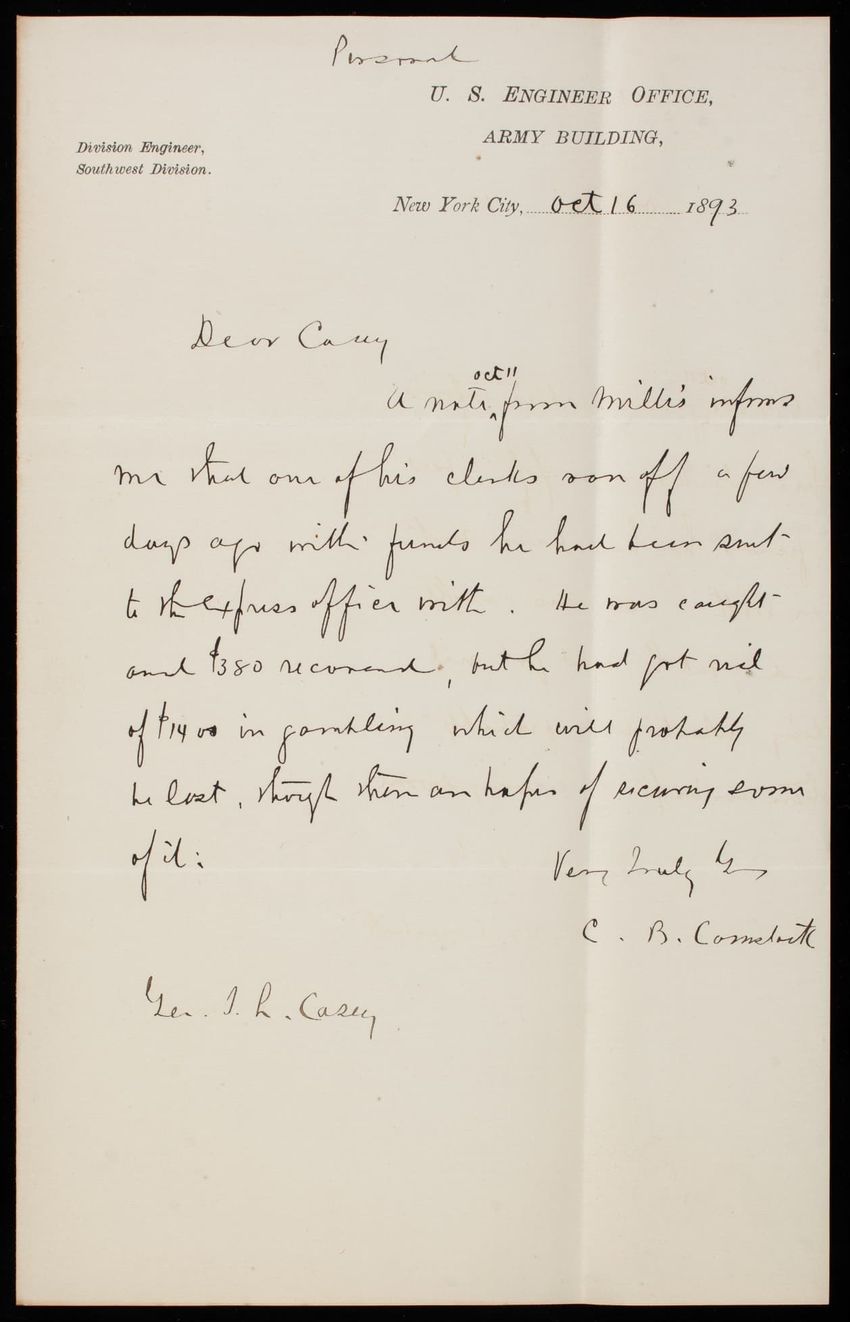 Personal
U. S. ENGINEER OFFICE,
ARMY BUILDING,
Division Engineer,
Southwest Division.
New York City, Oct 16 1893
Dear Casey
oct 11
A note from Millis informs
me that one of his clerks ran off a few
days ago with funds he had been sent
to the Express office with. He was caught
and $380 recovered, but he had got rid
of $1400 in gambling which will probably
be lost, though there are hopes of securing some
of it.
Very truly Yrs
C. B. Comstock
Gen. T. L. Casey